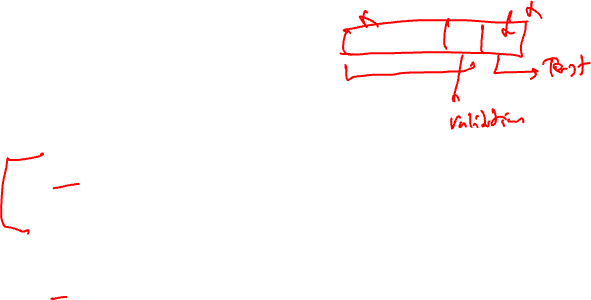 Test
validation